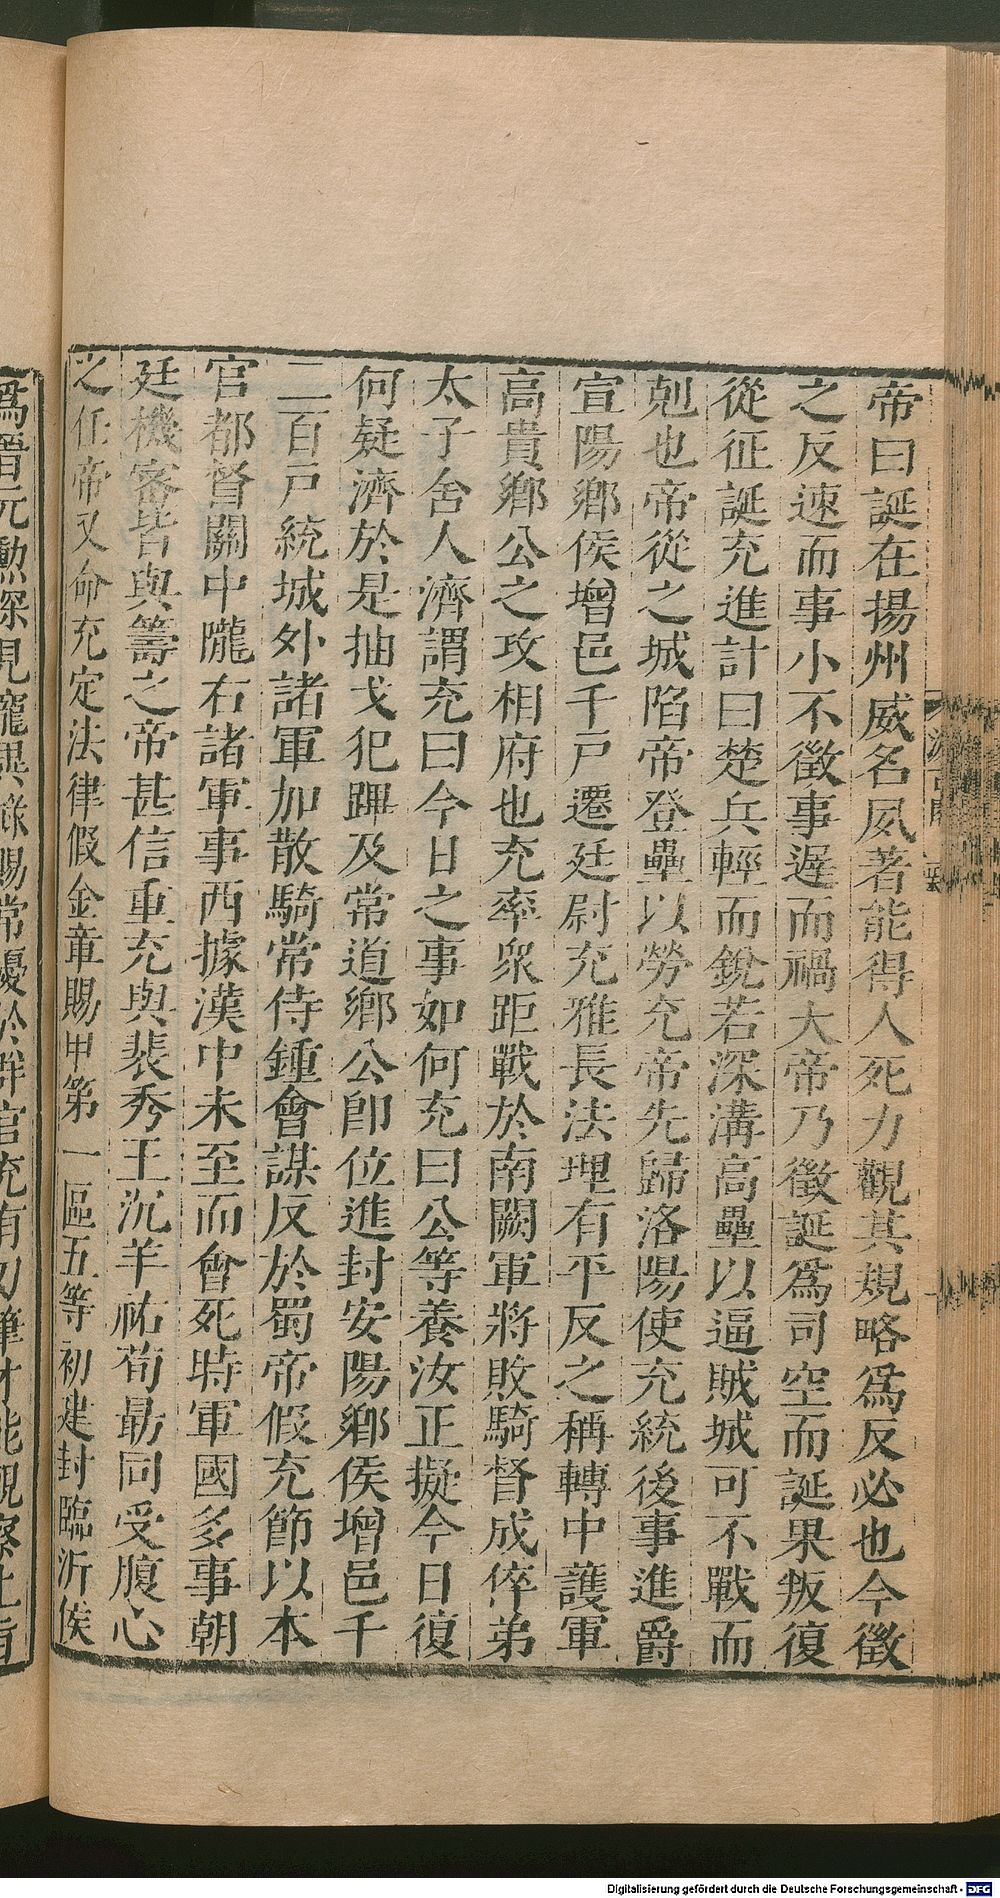 帝曰誕在揚州威名夙著能得人死力觀其規略爲反必也今徵
之反速而事小不徵事遲而禍大帝乃徵誕爲司空而誕果叛復
從征誕充進計曰楚兵輕而銳若深溝高壘以逼賊城可不戰而
剋也帝從之城陷帝登壘以勞充帝先歸洛陽使充統後事進爵
宣陽鄉侯增邑千戸遷廷尉充雅長法理有平反之稱轉中護軍
高貴鄉公之攻相府也充率衆距戰於南闕軍將敗騎督成倅弟
太子舍人濟謂充曰今日之事如何充曰公等養汝正擬今日復
何疑濟於是抽戈犯蹕及常道鄉公卽位進封安陽鄉侯增邑千
二百戸統城外諸軍加散騎常侍鍾會謀反於蜀帝假充節以本
官都督關中隴右諸軍事西據漢中未至而會死時軍國多事朝
廷機密皆與籌之帝甚信重充與裴秀王沉羊祜荀勗同受腹心
之任帝又命充定法律假金章賜甲第一區五等初建封臨沂侯
爲晉元勲深見寵異祿賜常優於群官充有刀筆才能觀察上旨
Digitalisierung gefördert durch die Deutsche Forschungsgemeinschaft - DFG